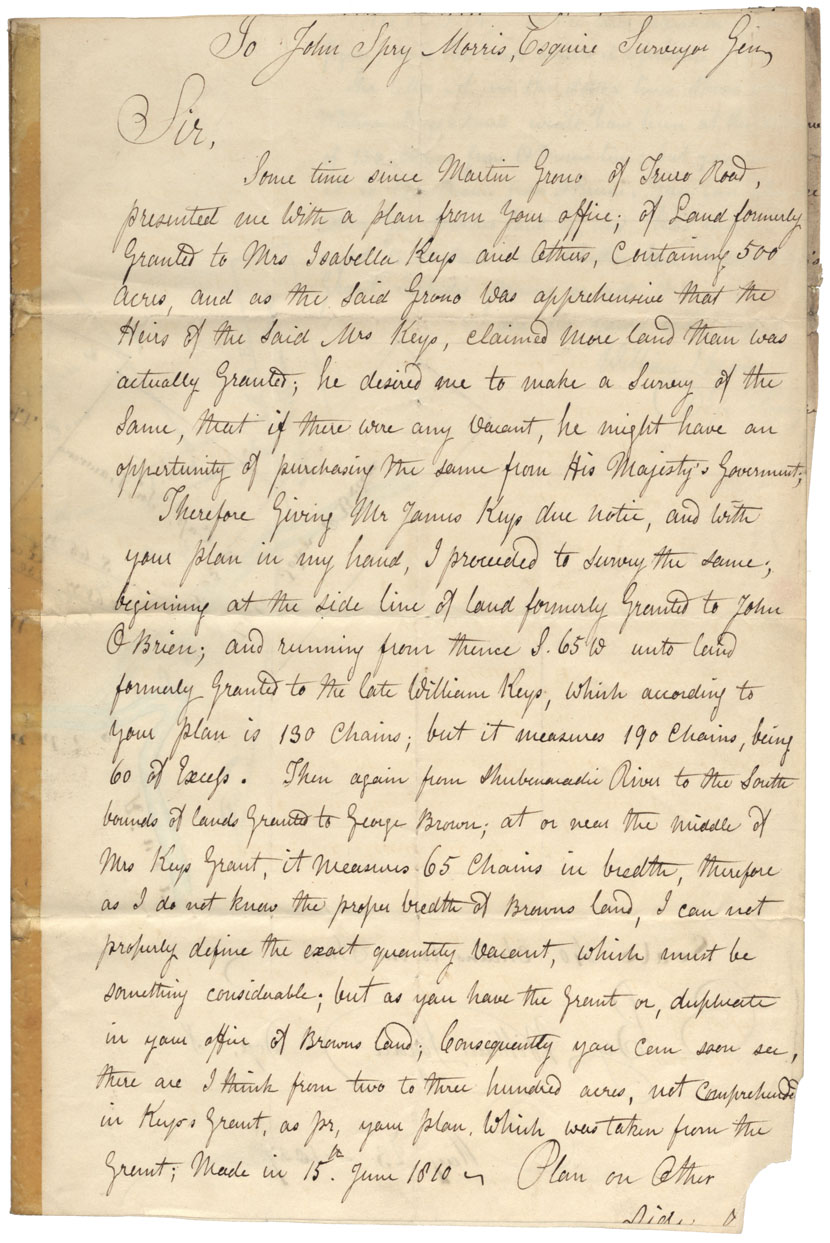 To John Spry Morris, Esquire Surveyor Gen
Sir,
Some time since Martin Grono of Truro Road,
presented me With a plan from Your office; of Land formerly
Granted to Mrs Isabella Keys and Others, Containing 500
Acres, and as the Said Grono Was apprehensive that the
Heirs of the Said Mrs Keys, claimed more land than was
actually Granted; he desired me to make a Survey of the
Same, that if there were any Vacant, he might have an
oppertunity of purchasing the same from His Majesty's Goverment;
Therefore Giving Mr James Keys due notie, and with
your plan in my hand, I proceeded to survey the same;
begining at the side line of land formerly Granted to John
O'Brien; and running from thence S. 65 W unto land
formerly Granted to the late William Keys, which acording to
your plan is 130 Chains; but it measures 190 Chains, being
60 of Excess. Then again from Shubenacadie River to the South
bounds of lands Granted to George Brown; at or near the middle of
Mrs Keys Grant, it measures 65 Chains in bredth, therefore
as I do not know the proper bredth of Browns land, I can not
properly define the exact quantity Vacant, which must be
something considerable; but as you have the Grant or, duplicate
in your office of Browns Land; Consequently you can soon see,
there are I think from two to three hundred acres, not Comprehended
in Keys's Grant, as pr, your plan. Which was taken from the
Grant; Made in 15th June 1810 ~ Plan on Other
Side